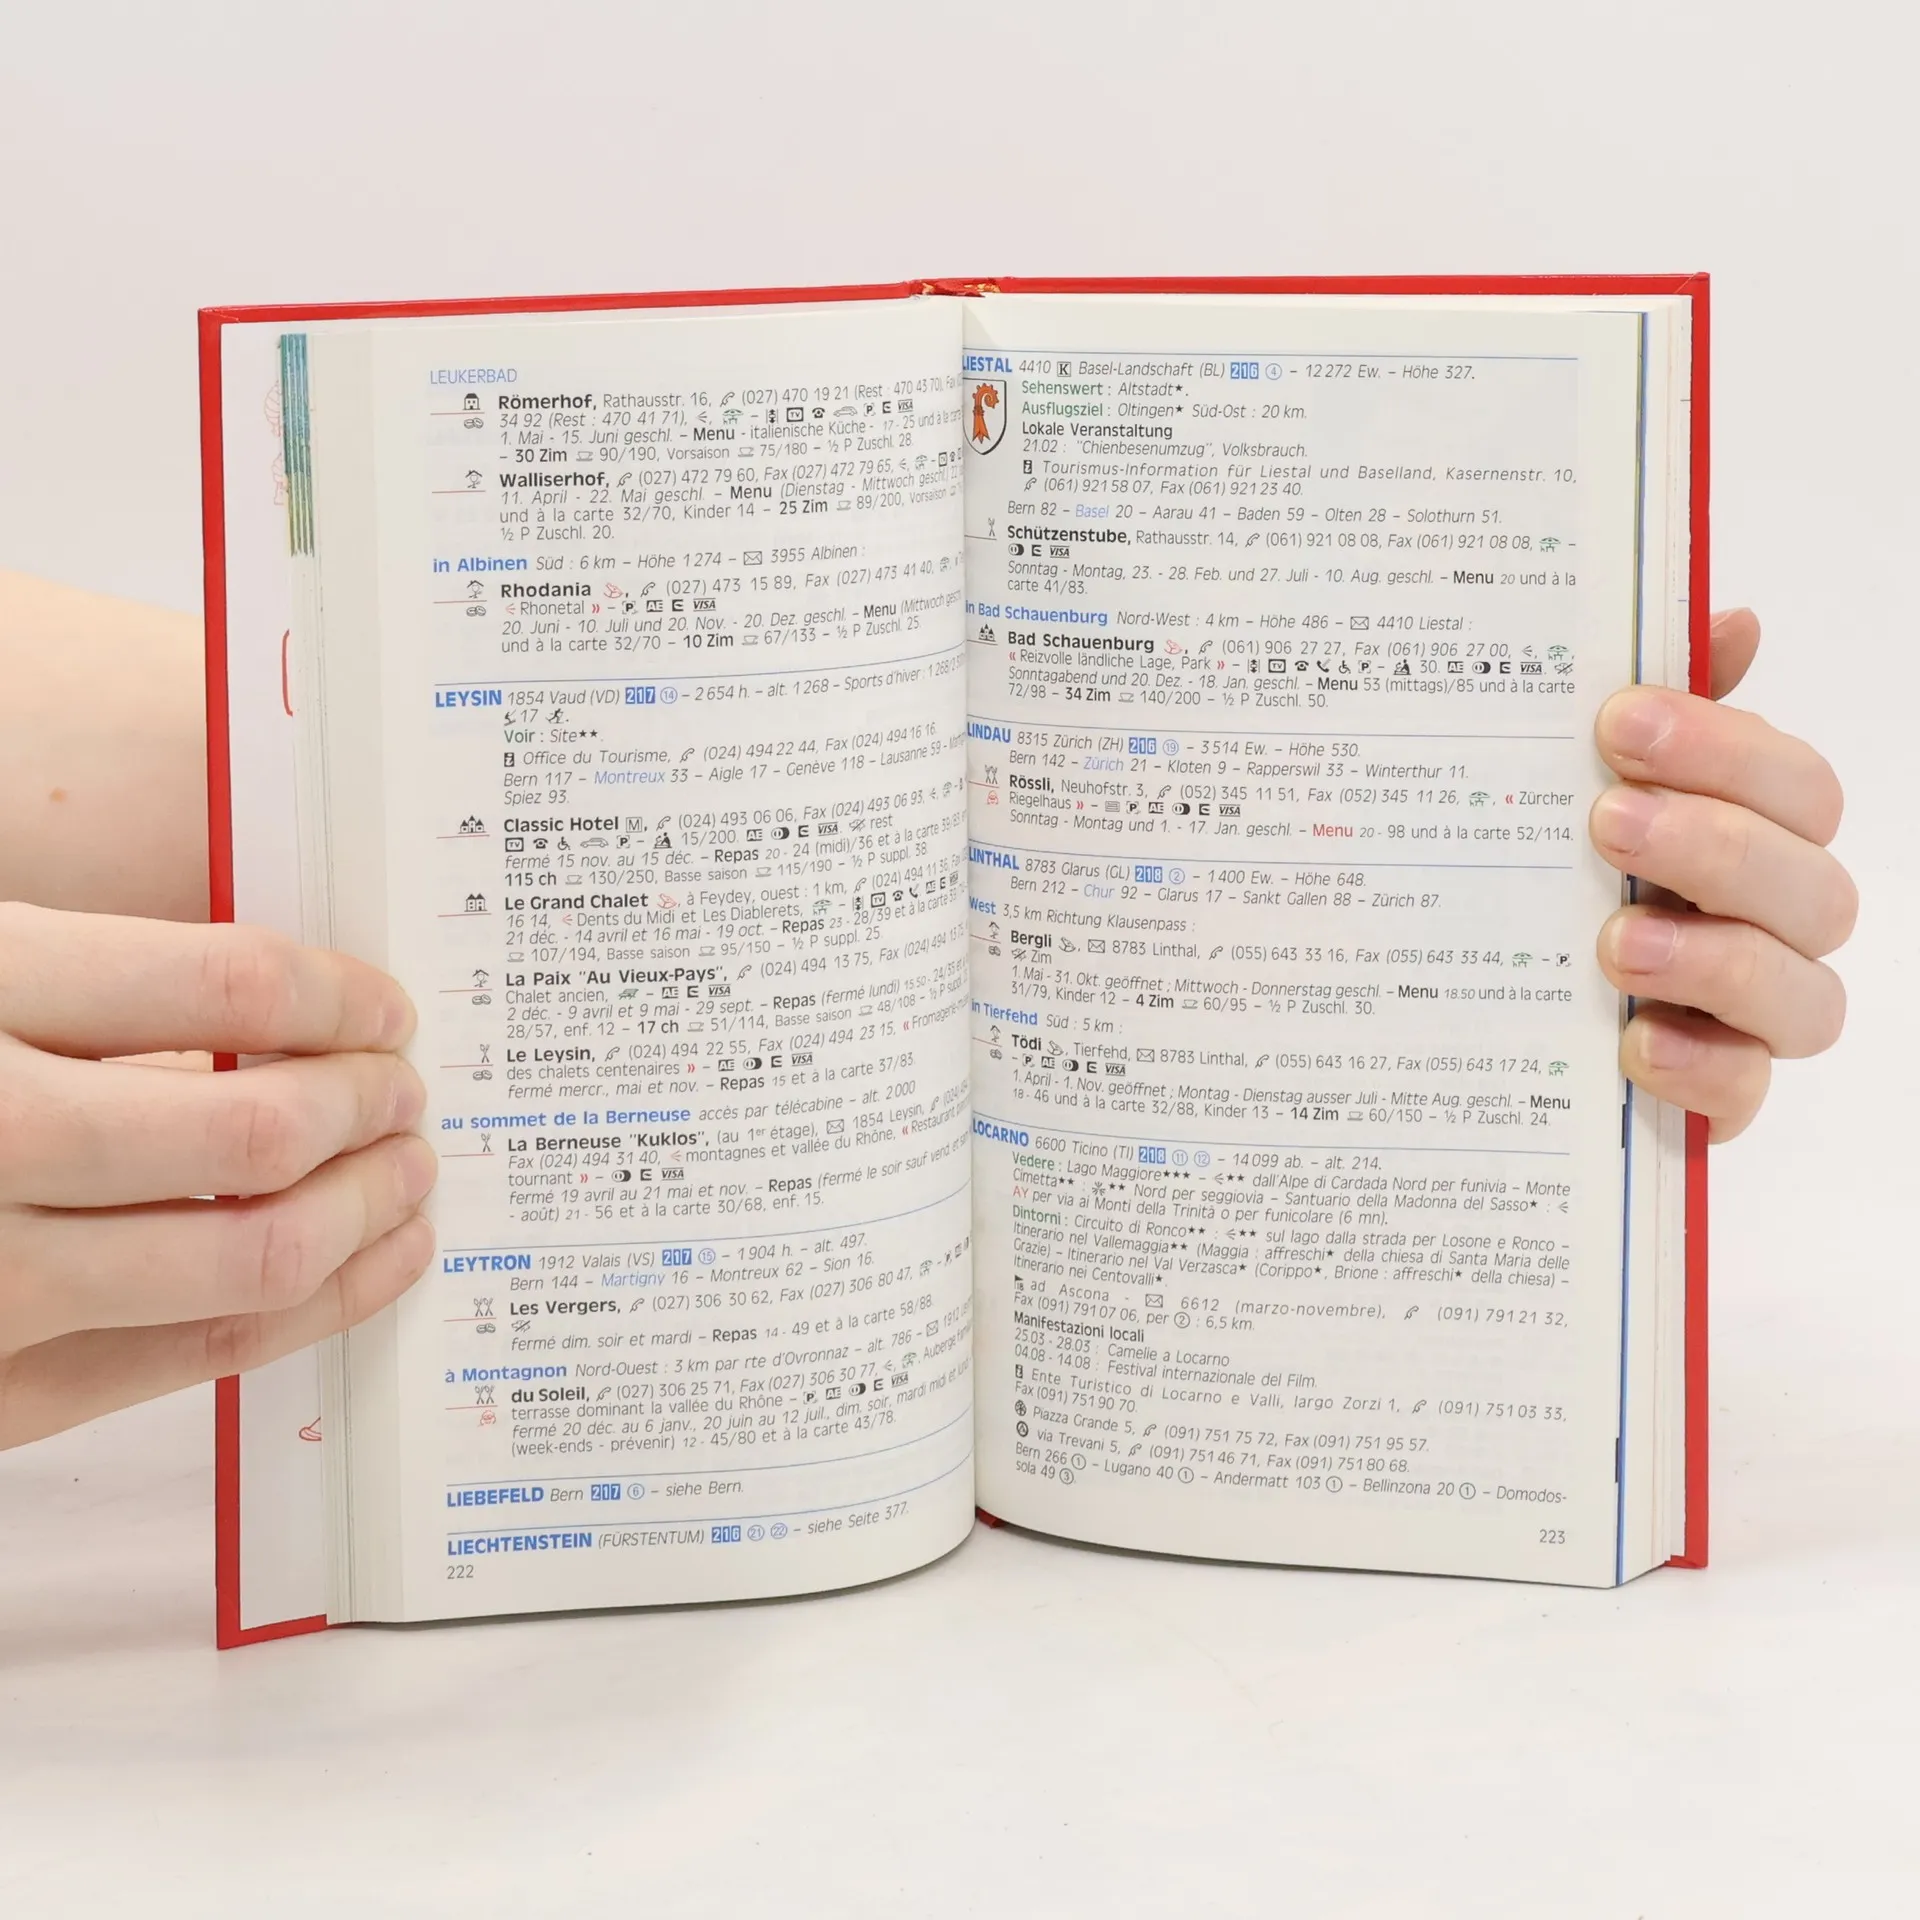 LEUKERBAD
Römerhof, Rathausstr. 16, (027) 470 19 21 (Rest : 470 43 70), Fax
34 92 (Rest : 470 41 71), TV P E VISA
1. Mai - 15. Juni geschl. – Menu - italienische Küche - 17 - 25 und à la carte
– 30 Zim 90/190, Vorsaison 75/180 – ½ P Zuschl. 28.
Walliserhof, (027) 472 79 60, Fax (027) 472 79 65,
11. April - 22. Mai geschl. – Menu (Dienstag - Mittwoch geschl.)
und à la carte 32/70, Kinder 14 – 25 Zim 89/200, Vorsaison
½ P Zuschl. 20.
in Albinen Süd : 6 km – Höhe 1 274 – 3955 Albinen :
Rhodania, (027) 473 15 89, Fax (027) 473 41 40,
Rhonetal » – P AE E VISA
20. Juni - 10. Juli und 20. Nov. - 20. Dez. geschl. – Menu (Mittwoch
und à la carte 32/70 – 10 Zim 67/133 – ½ P Zuschl. 25.
LEYSIN 1854 Vaud (VD) 217 14 – 2 654 h. – alt. 1 268 – Sports d'hiver :
17
Voir : Site★★.
Office du Tourisme, (024) 494 22 44, Fax (024) 494 16 16.
Bern 117 – Montreux 33 – Aigle 17 – Genève 118 – Lausanne 59 –
Spiez 93.
Classic Hotel M, (024) 493 06 06, Fax (024) 493 06 93,
TV P – 15/200. AE E VISA. rest
fermé 15 nov. au 15 déc. – Repas 20 - 24 (midi)/36 et à la carte
115 ch 130/250, Basse saison 115/190 – ½ P suppl. 38.
Le Grand Chalet, à Feydey, ouest : 1 km, (024) 494 11 36, Fax
16 14, Dents du Midi et Les Diablerets,
21 déc. - 14 avril et 16 mai - 19 oct. – Repas 23 - 28/39 et à la carte
107/194, Basse saison 95/150 – ½ P suppl. 25.
La Paix "Au Vieux-Pays", (024) 494 13 75, Fax (024) 494 13 75,
Chalet ancien, – AE E VISA
2 déc. - 9 avril et 9 mai - 29 sept. – Repas (fermé lundi) 15.50 - 24/35 et
28/57, enf. 12 – 17 ch 51/114, Basse saison 48/108 – ½ P suppl.
Le Leysin, (024) 494 22 55, Fax (024) 494 23 15, «
des chalets centenaires » – AE E VISA
fermé mercr., mai et nov. – Repas 15 et à la carte 37/83.
au sommet de la Berneuse accès par télécabine – alt. 2 000
La Berneuse "Kuklos", (au 1er étage), 1854 Leysin,
Fax (024) 494 31 40, montagnes et vallée du Rhône, « Restaurant
tournant » – E VISA
fermé 19 avril au 21 mai et nov. – Repas (fermé le soir sauf vend. et
- août) 21 - 56 et à la carte 30/68, enf. 15.
LEYTRON 1912 Valais (VS) 217 15 – 1 904 h. – alt. 497.
Bern 144 – Martigny 16 – Montreux 62 – Sion 16.
Les Vergers, (027) 306 30 62, Fax (027) 306 80 47,
fermé dim. soir et mardi – Repas 14 - 49 et à la carte 58/88.
à Montagnon Nord-Ouest : 3 km par rte d'Ovronnaz – alt. 786 – 1912
du Soleil, (027) 306 25 71, Fax (027) 306 30 77, Auberge
terrasse dominant la vallée du Rhône – P AE E VISA
fermé 20 déc. au 6 janv., 20 juin au 12 juil., dim. soir, mardi midi et
(week-ends - prévenir) 12 - 45/80 et à la carte 43/78.
LIEBEFELD Bern 217 6 – siehe Bern.
LIECHTENSTEIN (FÜRSTENTUM) 216 21 22 – siehe Seite 377.
222
LIESTAL 4410 K Basel-Landschaft (BL) 216 4 – 12 272 Ew. – Höhe 327.
Sehenswert : Altstadt★.
Ausflugsziel : Oltingen★ Süd-Ost : 20 km.
Lokale Veranstaltung
21.02 : "Chienbesenumzug", Volksbrauch.
Tourismus-Information für Liestal und Baselland, Kasernenstr. 10,
(061) 921 58 07, Fax (061) 921 23 40.
Bern 82 – Basel 20 – Aarau 41 – Baden 59 – Olten 28 – Solothurn 51.
Schützenstube, Rathausstr. 14, (061) 921 08 08, Fax (061) 921 08 08, –
E VISA
Sonntag - Montag, 23. - 28. Feb. und 27. Juli - 10. Aug. geschl. – Menu 20 und à la
carte 41/83.
in Bad Schauenburg Nord-West : 4 km – Höhe 486 – 4410 Liestal :
Bad Schauenburg, (061) 906 27 27, Fax (061) 906 27 00,
« Reizvolle ländliche Lage, Park » – TV P – 30. AE E VISA.
Sonntagabend und 20. Dez. - 18. Jan. geschl. – Menu 53 (mittags)/85 und à la carte
72/98 – 34 Zim 140/200 – ½ P Zuschl. 50.
LINDAU 8315 Zürich (ZH) 216 19 – 3 514 Ew. – Höhe 530.
Bern 142 – Zürich 21 – Kloten 9 – Rapperswil 33 – Winterthur 11.
Rössli, Neuhofstr. 3, (052) 345 11 51, Fax (052) 345 11 26, , « Zürcher
Riegelhaus » – P AE E VISA
Sonntag - Montag und 1. - 17. Jan. geschl. – Menu 20 - 98 und à la carte 52/114.
LINTHAL 8783 Glarus (GL) 218 2 – 1 400 Ew. – Höhe 648.
Bern 212 – Chur 92 – Glarus 17 – Sankt Gallen 88 – Zürich 87.
West 3,5 km Richtung Klausenpass :
Bergli, 8783 Linthal, (055) 643 33 16, Fax (055) 643 33 44, – P,
Zim
1. Mai - 31. Okt. geöffnet ; Mittwoch - Donnerstag geschl. – Menu 18.50 und à la carte
31/79, Kinder 12 – 4 Zim 60/95 – ½ P Zuschl. 30.
in Tierfehd Süd : 5 km :
Tödi, Tierfehd, 8783 Linthal, (055) 643 16 27, Fax (055) 643 17 24,
– P AE E VISA
1. April - 1. Nov. geöffnet ; Montag - Dienstag ausser Juli - Mitte Aug. geschl. – Menu
18 - 46 und à la carte 32/88, Kinder 13 – 14 Zim 60/150 – ½ P Zuschl. 24.
LOCARNO 6600 Ticino (TI) 218 11 12 – 14 099 ab. – alt. 214.
Vedere : Lago Maggiore★★★ – ★★ dall'Alpe di Cardada Nord per funivia – Monte
Cimetta★★ : ★★ Nord per seggiovia – Santuario della Madonna del Sasso★ :
AY per via ai Monti della Trinità o per funicolare (6 mn).
Dintorni : Circuito di Ronco★★ : ★★ sul lago dalla strada per Losone e Ronco –
Itinerario nel Vallemaggia★★ (Maggia : affreschi★ della chiesa di Santa Maria delle
Grazie) – Itinerario nel Val Verzasca★ (Corippo★, Brione : affreschi★ della chiesa) –
Itinerario nei Centovalli★.
18 ad Ascona - 6612 (marzo-novembre), (091) 791 21 32,
Fax (091) 791 07 06, per 2 : 6,5 km.
Manifestazioni locali
25.03 - 28.03 : Camelie a Locarno
04.08 - 14.08 : Festival internazionale del Film.
Ente Turistico di Locarno e Valli, largo Zorzi 1, (091) 751 03 33,
Fax (091) 751 90 70.
Piazza Grande 5, (091) 751 75 72, Fax (091) 751 95 57.
via Trevani 5, (091) 751 46 71, Fax (091) 751 80 68.
Bern 266 1 – Lugano 40 1 – Andermatt 103 1 – Bellinzona 20 1 – Domodos-
sola 49 3.
223